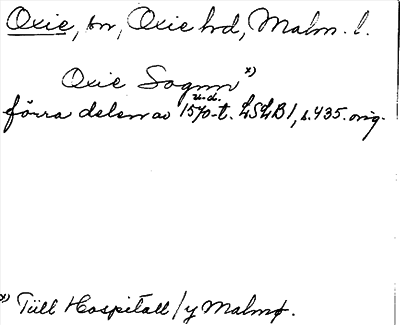 Oxie, sn, Oxie hd, Malm. l.
Oxie Sognn x)
u.d.
förra delen av 1570-t. LSLB 1, s. 435. orig.
x) Till Hospitall / y Malmø.